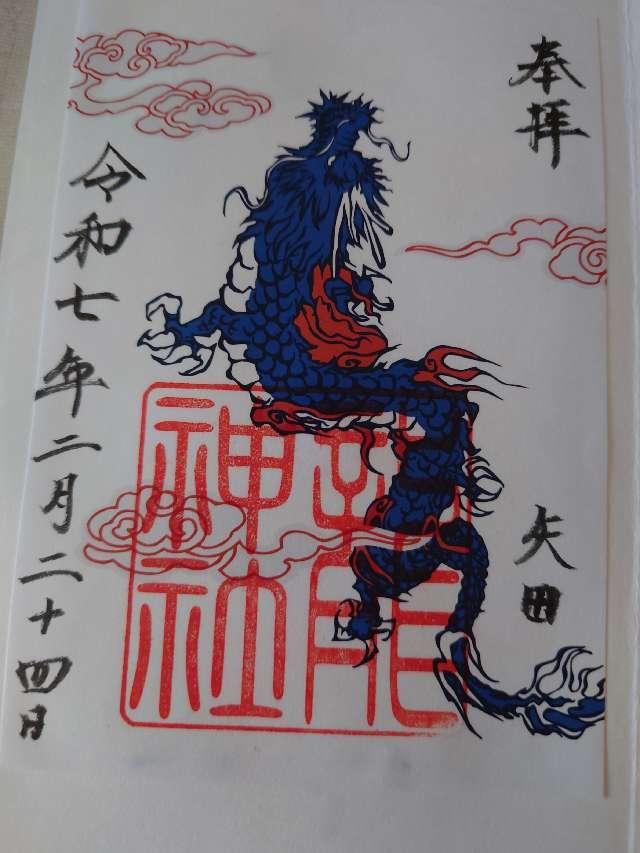 奉拝
矢田
神社
令和七年二月二十四日